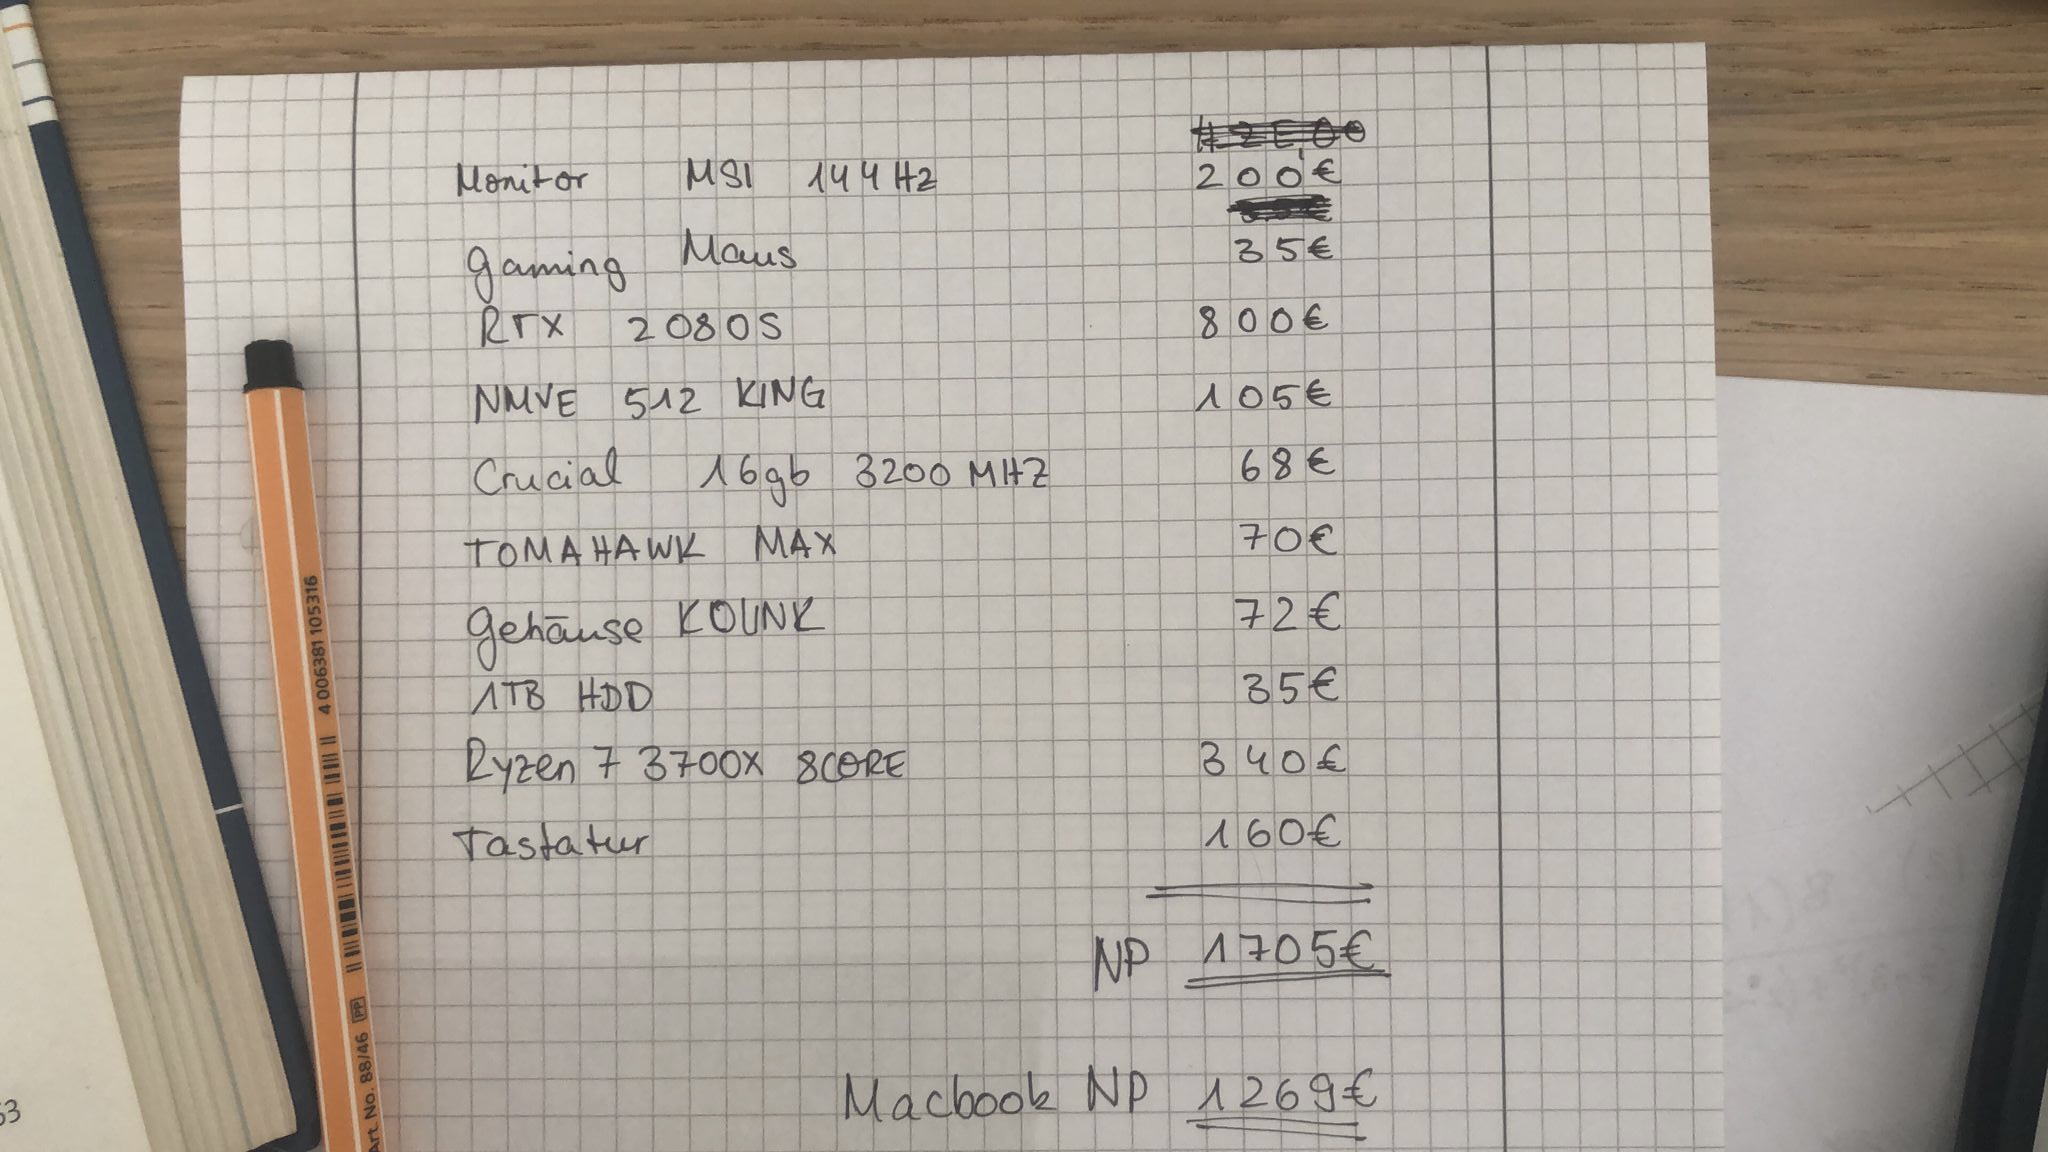 Monitor MSI 144Hz 200€
gaming Maus 35€
RTX 2080S 800€
NMVE 512 KING 105€
Crucial 16gb 3200 MHZ 68€
TOMAHAWK MAX 70€
Gehäuse KOLINK 72€
1TB HDD 35€
Ryzen 7 3700X 8CORE 340€
Tastatur 160€
NP 1705€
Macbook NP 1269€
4 006381 105316
Art. No. 88/46 PP
53